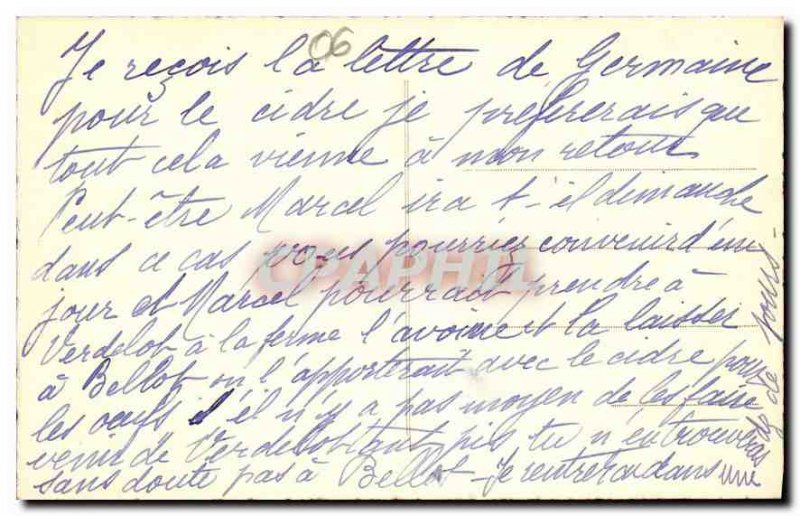 06
Je reçois la lettre de Germaine
pour le cidre je préfererais que
tout cela vienne à mon retour
Peut-être Marcel ira t-il dimanche
dans ce cas vous pourriez convenir d'un
jour et Marcel pourrait prendre à
Verdelot à la ferme l'avoine et la laisser
à Bellot on l'apporterait avec le cidre pour
les oeufs s'il n'y a pas moyen de les faire
venir de Verdelot tant pis tu n'en trouveras
sans doute pas à Bellot - Je rentrerai dans une
de jours -
CPAPHIL